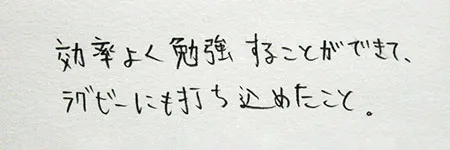 効率よく勉強することができて、
ラグビーにも打ち込めたこと。